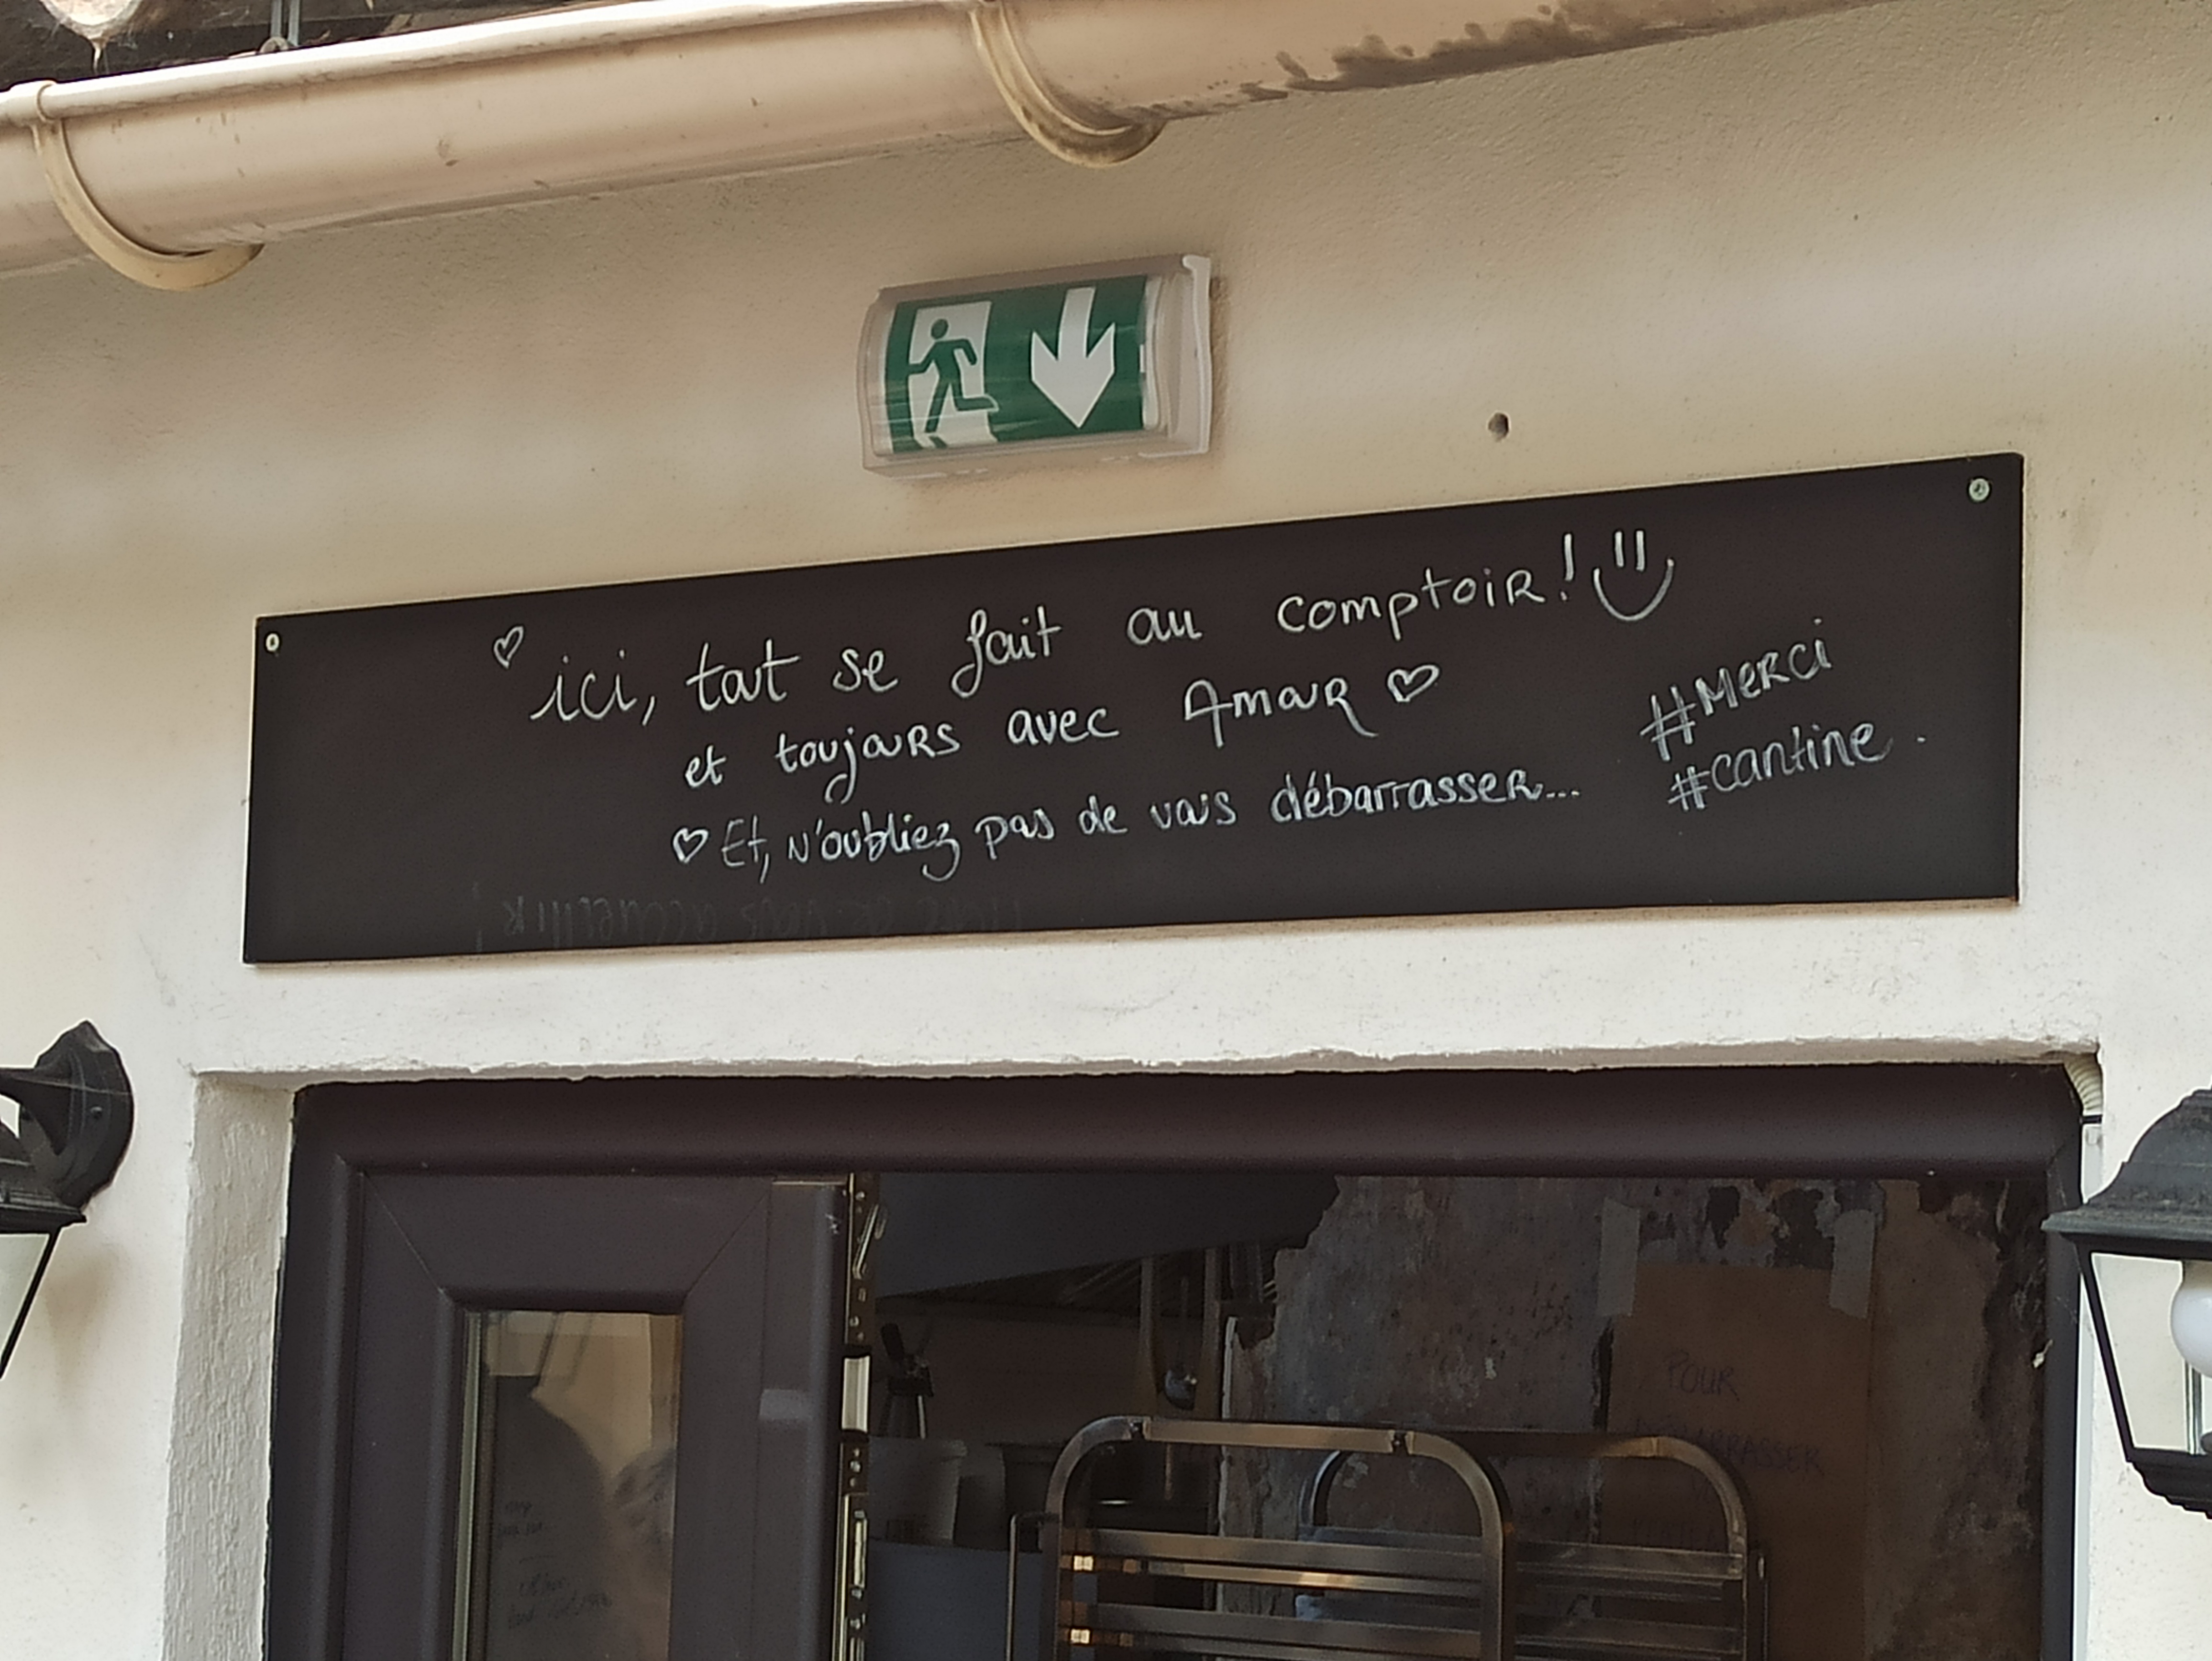 ♡ ici, tout se fait au comptoir !
et toujours avec Amour ♡
♡ Et, n'oubliez pas de vous débarrasser...
#Merci
#cantine.
POUR